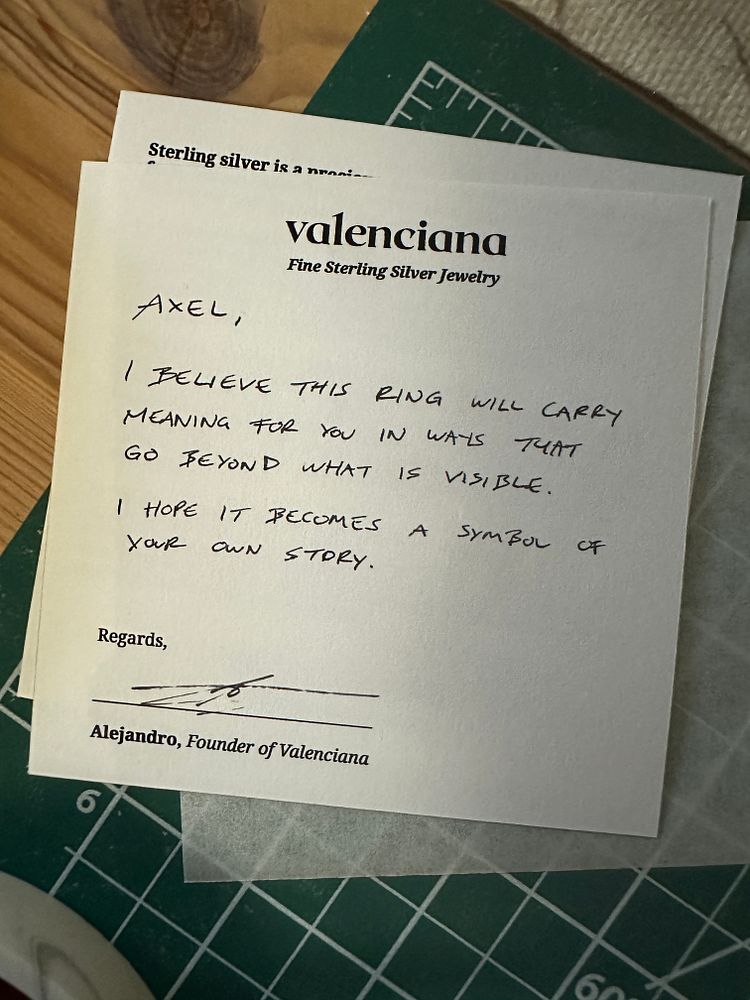 Sterling silver is a
valenciana
Fine Sterling Silver Jewelry
AXEL,
I BELIEVE THIS RING WILL CARRY
MEANING FOR YOU IN WAYS THAT
GO BEYOND WHAT IS VISIBLE.
I HOPE IT BECOMES A SYMBOL OF
YOUR OWN STORY.
Regards,
Alejandro, Founder of Valenciana
6
60